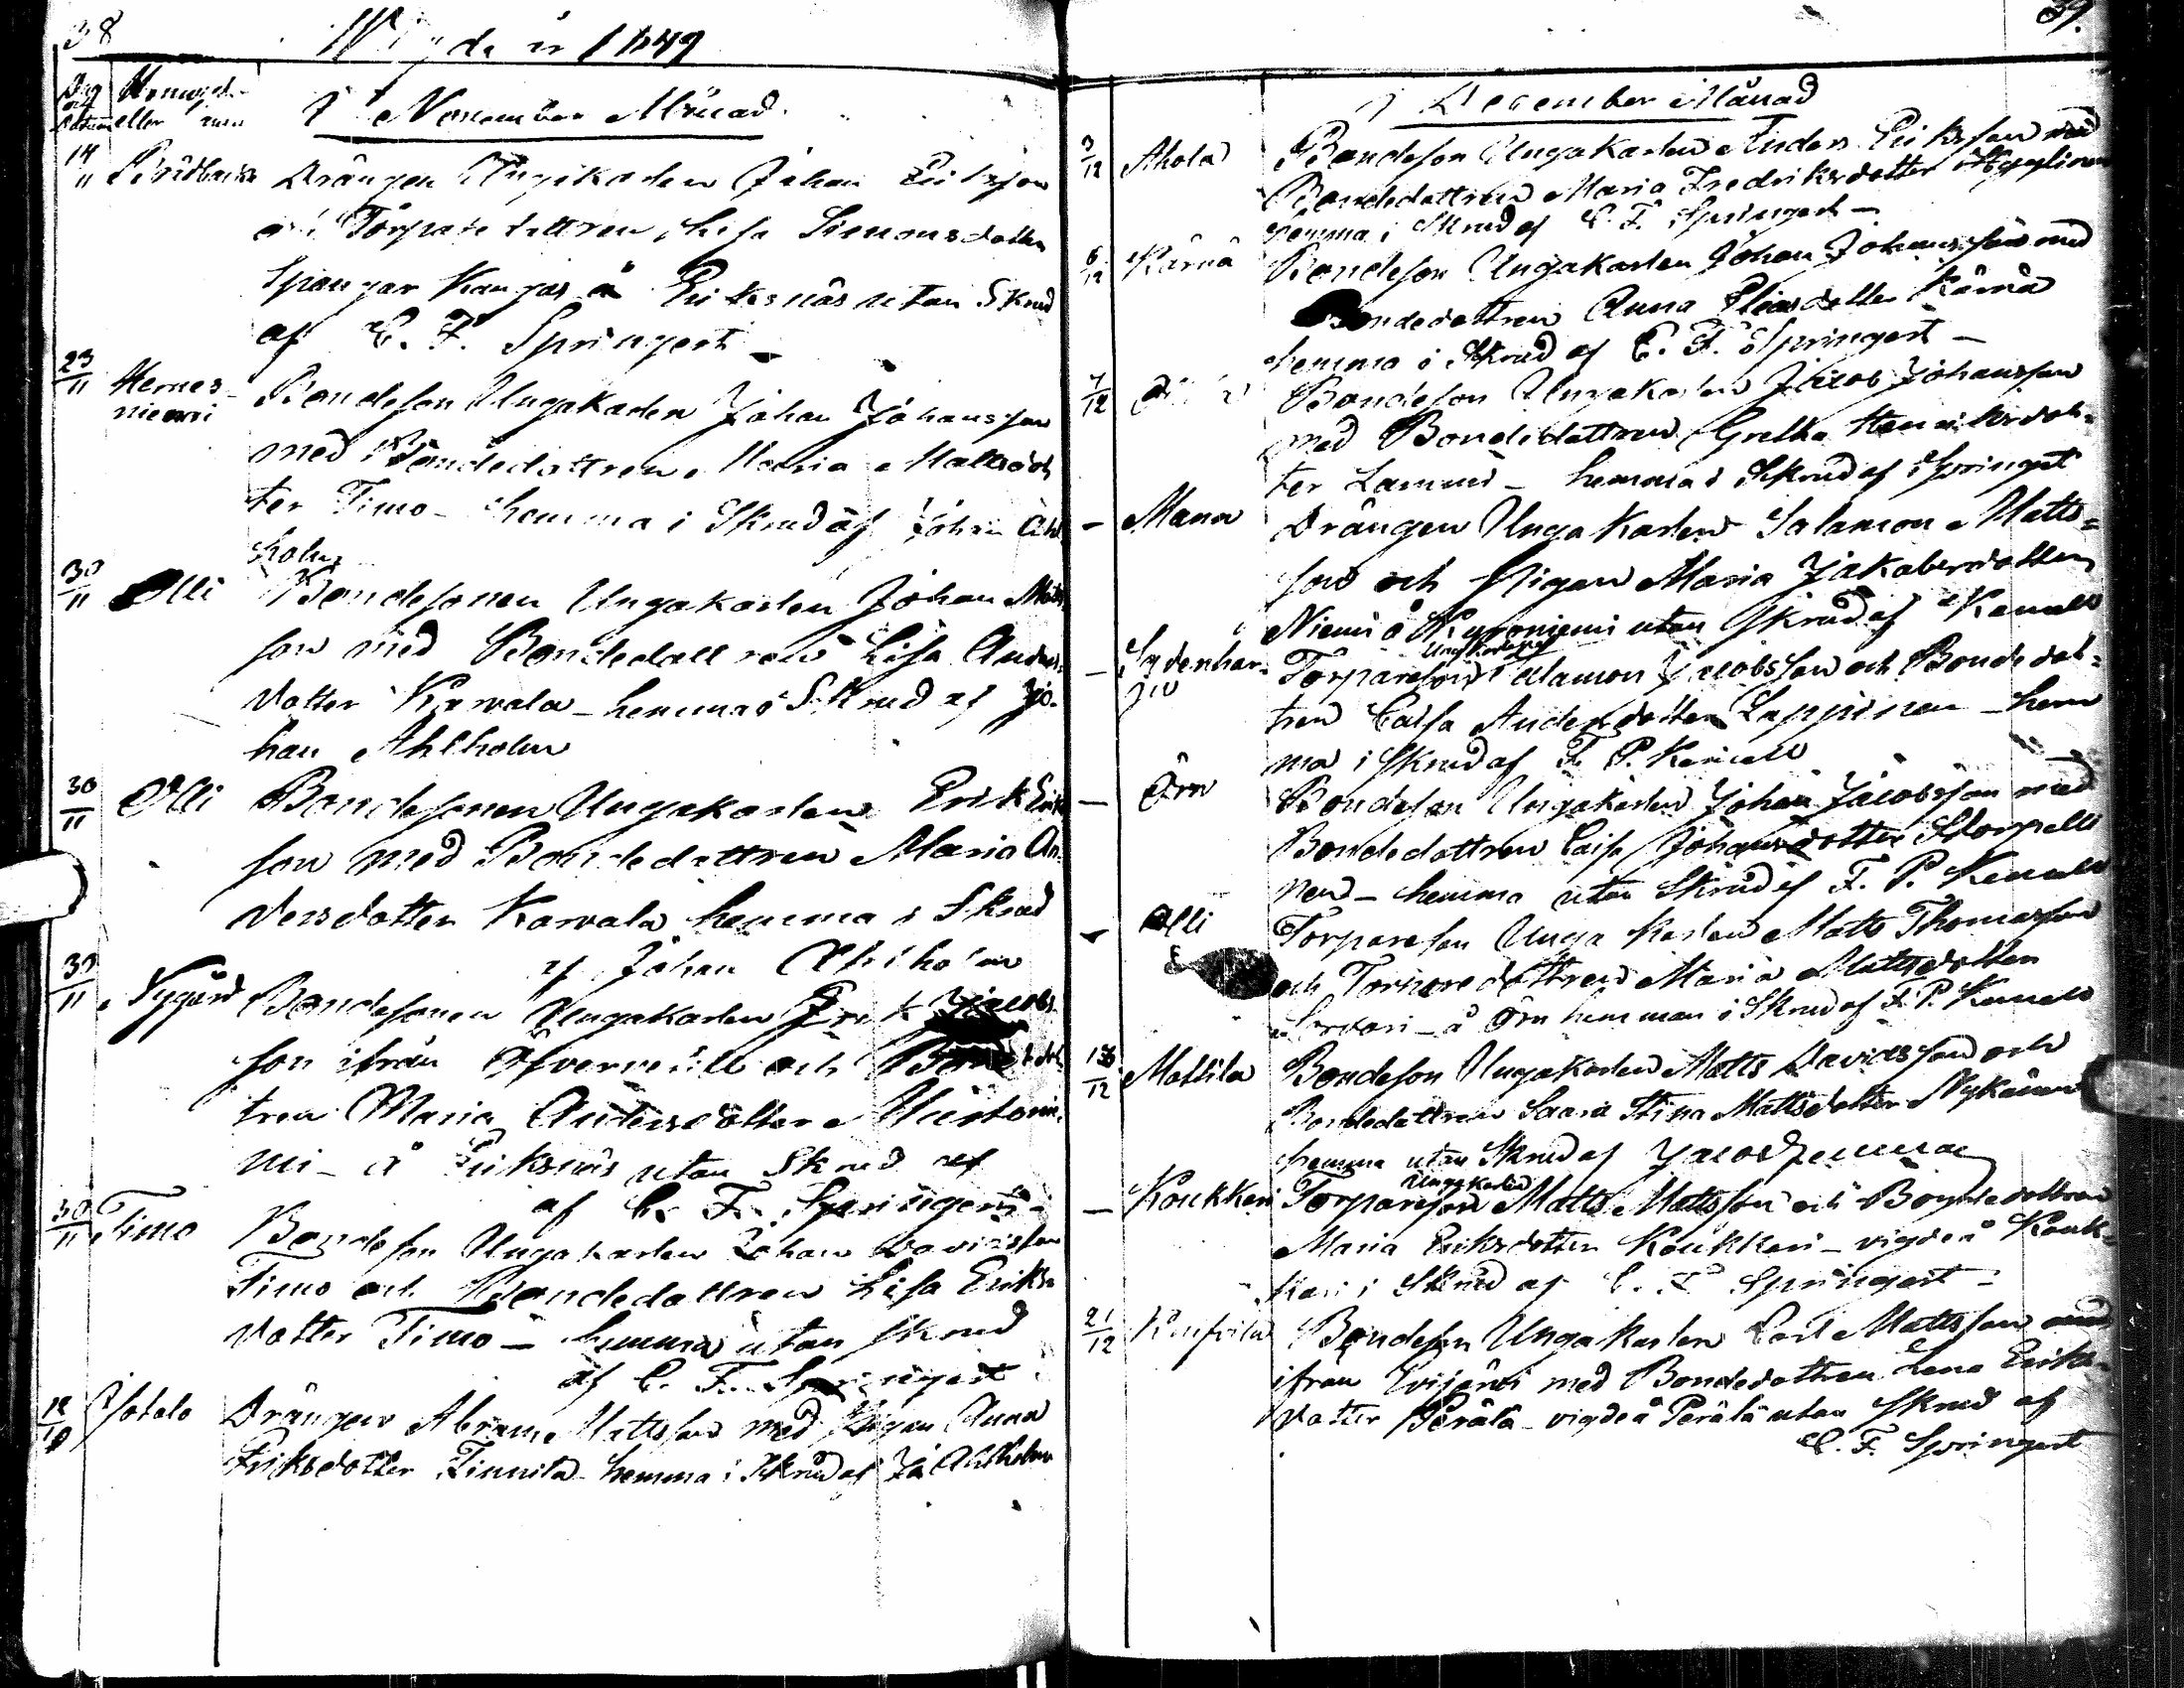 38
Wigde år 1849
Dag och Datum
Hemvist eller namn
I November Månad
14/11 Drängen Ungakarlen Johan Eriksson
och Torparedottren Lisa Simonsdotter
Spangar Kangas å Eriksnäs utan Skrud
af C. F. Springert –
23/11 Hernesniemi Bondeson Ungakarlen Johan Johansson
med Bondedottren Maria Mattsdot
ter Timo – hemma i Skrud af Johan Ahl
holm
30/11 Olli Bondesonen Ungakarlen Johan Matts
son med Bondedottren Lisa Anders
dotter Karvala – hemma i Skrud af Jo-
han Ahlholm
30/11 Olli Bondesonen Ungakarlen Erik Erik
son med Bondedottren Maria An-
dersdotter Karvala hemma i Skrud
af Johan Ahlholm
30/11 Nygård Bondesonen Ungakarlen Erik Jacobs
son ifrån Öfververill och Bondedot
tren Maria Andersdotter
mi – å Eriksnäs utan Skrud af
af C. F. Springert –
30/11 Timo Bondeson Ungakarlen Johan Davidsson
Timo och Bondedottren Lisa Eriks
dotter Timo – hemma utan skrud
af C. F. Springert
Jotelo Drängen Abram Mattsson med Pigan Anna
Eriksdotter Finnila hemma i Skrud af Jo Ahlholm
39.
I December Månad
3/12 Ahola Bondeson Ungakarlen Anders Eriksson med
Bondedottren Maria Fredriksdotter
hemma i Skrud af C. F. Springert –
6/12 Kärnä Bondeson Ungakarlen Johan Johansson med
Bondedottren Anna Eliasdotter Kärnä
hemma i Skrud af C. F. Springert –
7/12 Bondeson Ungakarlen Jacob Johansson
med Bondedottren Gretha Henriksdot-
ter Lammi – hemma i Skrud af Springert
– Mann Drängen Ungakarlen Salamon Matts=
son och Pigan Maria Jakobsdotter
Niemi å Kyröniemi utan skrud af Kemell
– Sydenhar-
ju Torpareson Ungkarlen Salamon Jacobsson och Bondedot=
tren Caisa Andersdotter Lappinen – hem
ma i skrud af F. P. Kemell
– Örn Bondeson Ungakarlen Johan Jacobsson med
Bondedottren Caisa Johansdotter Storpelli
nen – hemma utan Skrud af F. P. Kemell
– Olli Torpareson Ungakarlen Matts Thomasson
och Torparedottren Maria Mattsdotter
– å Örn hemman i Skrud af F. P. Kemell
Mattila Bondeson Ungakarlen Matts Davidsson och
Bondedottren Saara Stina Mattsdotter Nykänen
hemma utan Skrud af
– Koukkari Torpareson Ungakarlen Matts Mattsson och Bondedottren
Maria Eriksdotter Koukkari – vigde å Kouk-
kari i Skrud af C. F. Springert –
21/12 Bondeson Ungakarlen Carl Mattsson
ifrån Evijärvi med Bondedottren Lena Eriks-
dotter Perälä – vigde å Perälä utan skrud af
C. F. Springert